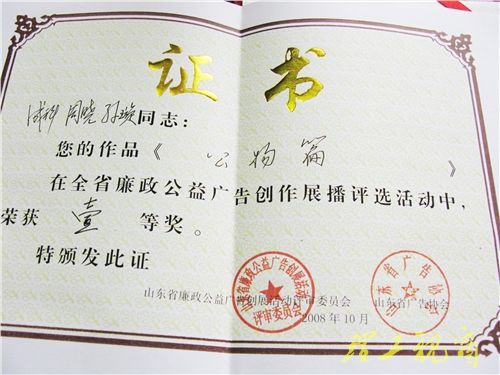 证书
周晓 孙璇同志：
您的作品《公物篇》
在全省廉政公益广告创作展播评选活动中，
荣获 壹 等奖。
特颁发此证
山东省廉政公益广告创展活动评审委员会 山东省广告协会
2008年10月
山东省廉政公益广告创展活动
评审委员会
山东省广告协会